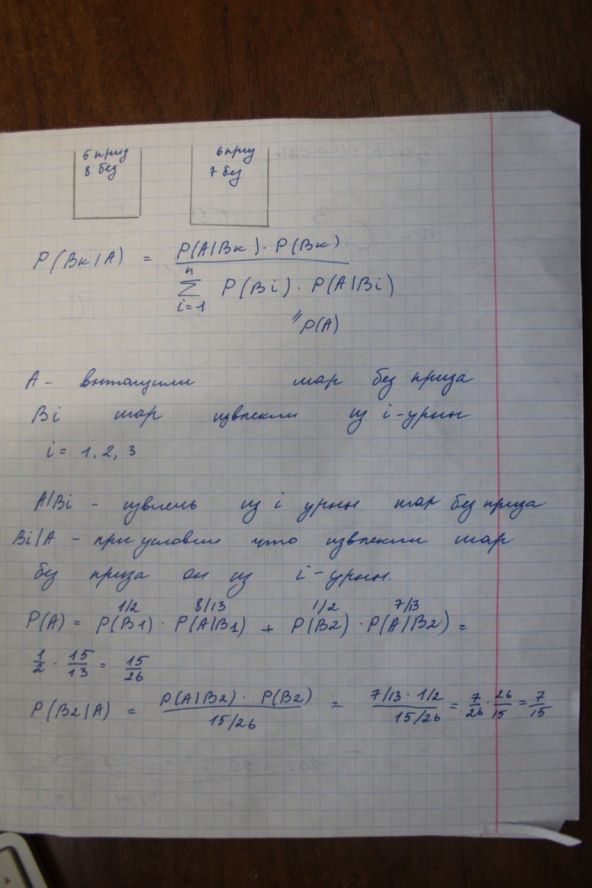 5 приз 6 приз
8 без 7 без
P(Bк/A) = P(A|Bк) · P(Bк) / n Σ i=1 P(Bi) · P(A|Bi)
" P(A)
A - вытащили шар без приза
Bi шар извлекли из i-урны
i = 1, 2, 3
A|Bi - извлечь из i урны шар без приза
Bi/A - при условии что извлекли шар
без приза он из i-урны.
1/2 8/13 1/2 7/13
P(A) = P(B1) · P(A|B1) + P(B2) · P(A|B2) =
1/2 · 15/13 = 15/26
P(B2|A) = P(A|B2) · P(B2) / 15/26 = 7/13 · 1/2 / 15/26 = 7/26 · 26/15 = 7/15